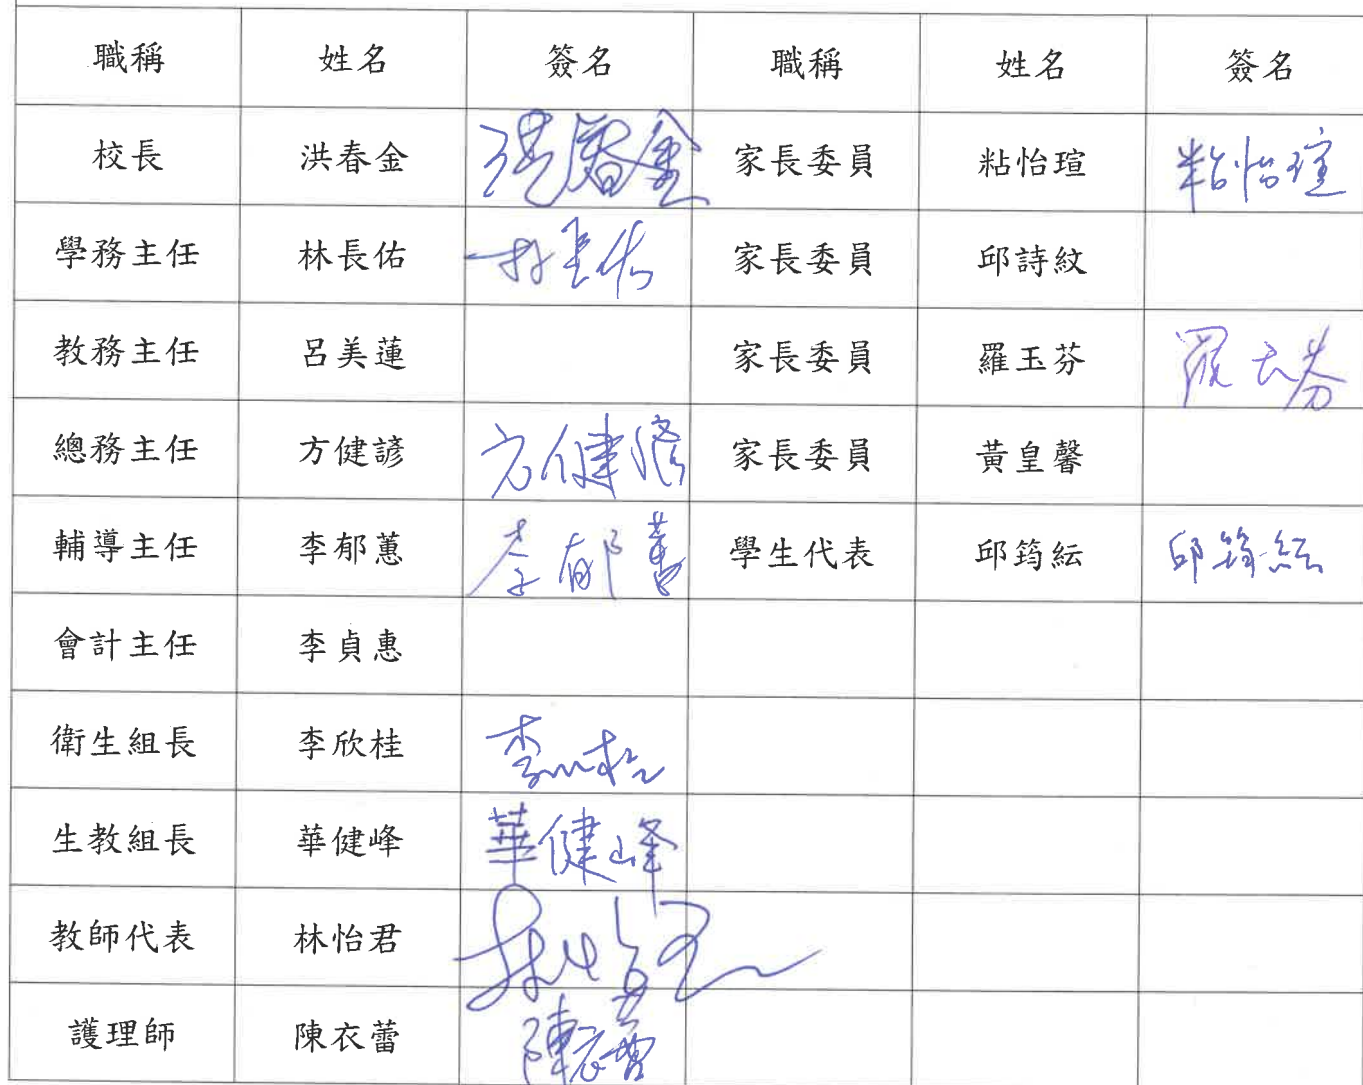 職稱 姓名 簽名 職稱 姓名 簽名
校長 洪春金 洪春金 家長委員 粘怡瑄 粘怡瑄
學務主任 林長佑 林長佑 家長委員 邱詩紋
教務主任 呂美蓮 家長委員 羅玉芬 羅玉芬
總務主任 方健諺 方健諺 家長委員 黃皇馨
輔導主任 李郁蕙 李郁蕙 學生代表 邱筠紜 邱筠紜
會計主任 李貞惠
衛生組長 李欣桂 李欣桂
生教組長 華健峰 華健峰
教師代表 林怡君 林怡君
護理師 陳衣蕾 陳衣蕾